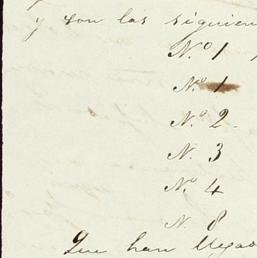 y son las siguien
N.º 1,
N.º 1
N.º 2.
N. 3
N.º 4
N. 8
Que han llegad